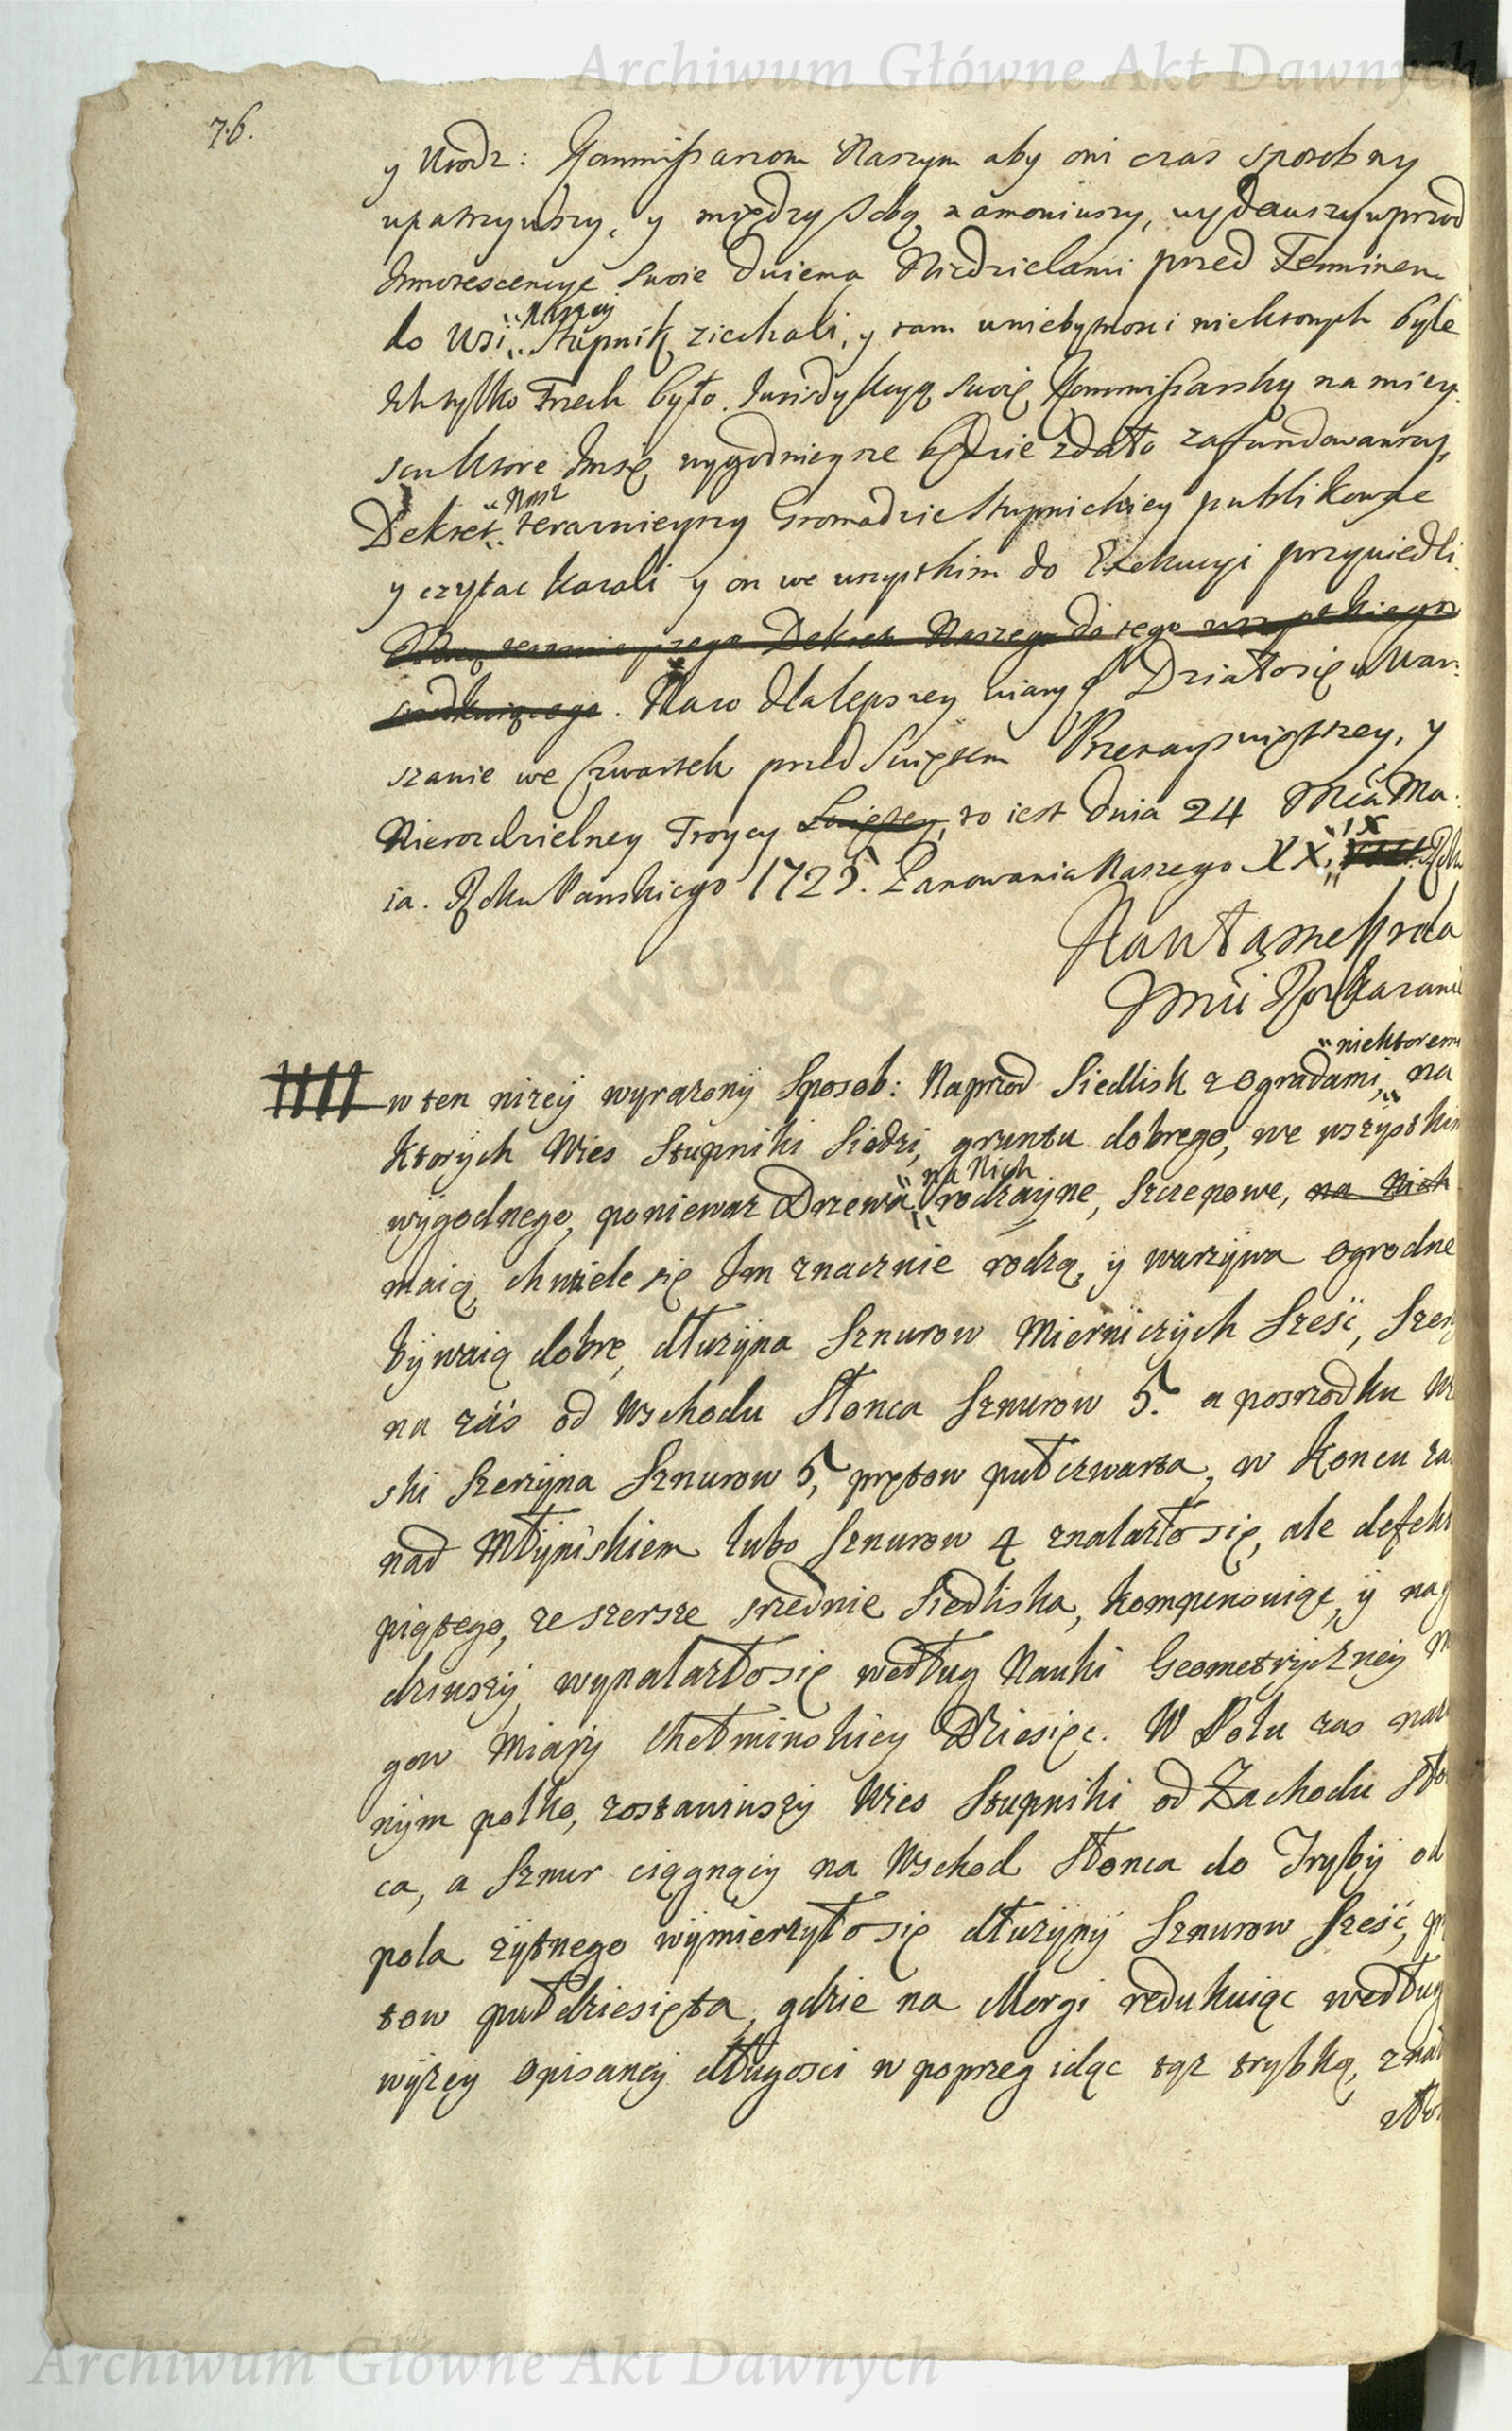 Archiwum Główne Akt Dawnych
76.
y Urodz: Kommissarzom Naszym aby oni czas sposobny
upatrzywszy, y między sobą znamoniwszy, wydawszy wprzod
Innotescencye swoie dwiema Niedzielami przed Terminem
do Wsi „Naszey„ Stupnik ziechali, y tam wniebytnosci niektorych byle
Ich tylko Trzech było. Iurisdykcyą swoię Kommissarską na miey
scu ktore Imsię wygodnieysze będzie zdało zafundowawszy,
Dekret „Nasz„ teraznieyszy Gromadzie Stupnickiey publikowac
y czytac kazali y on we wszystkim do Exekucyi przywiedli.
Mocą teraznieyszego Dekretu Naszego do tego wszystkiego
. Naco dla lepszey wiary Działosię w War:
szawie we Czwartek przed Swiętem Przenayswiętszey, y
Nierozdzielney Troycy Swiętey, to iest dnia 24 Mca Ma:
ia. Roku Panskiego 1725. Panowania Naszego XX„IX„ Roku
Na własne Krola
Jmci Rozkazanie
w ten niżey wyrażony Sposob: Naprzod Siedlisk z Ogradami, „niektoremi„ na
ktorych Wies Stupniki Siedzi, gruntu dobrego, we wszystkim
wygodnego, poniewaz Drzewa „na Nich„ rodzayne, Szczepowe, na Nich
maią, chwiele się Im znacznie rodzą, y warzywa ogrodne
bywaią dobre, dłużyna Sznurow Mierniczych Szesc, Szerz
na zás od Wschodu Słonca Sznurow 5. a posrzodku W
ski Szerzyna Sznurow 5, prętow pułczwarta, w Koncu za
nad Młyniskiem lubo Sznurow 4 znalazło się, ale defekt
piątego, ze szersze srzednie Siedliska, kompenouiąc, y nag
dziwszy wynalazłosię według Nauki Geometryczney M
gow Miary Chełminskiey Dziesięc. W Polu zas naz
nym polko, zostawiwszy Wies Stupniki od Zachodu Sło
ca, a Sznur ciągnący na Wschod Słonca do Tryby od
pola żytnego wymierzyło się dłużyny Sznurow Szesc, p
tow pułdziesięta, gdzie na Morgi redukuiąc według
wyżey opisaney długosci w poprzeg idąc tąż trybką, znal
zło
Archiwum Główne Akt Dawnych